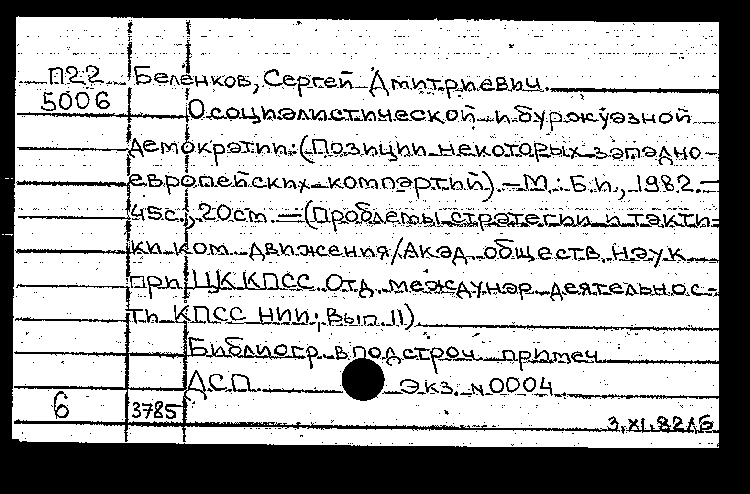 П22 Беленков, Сергей Дмитриевич.
5006 О социалистической и буржуазной
демократии: (Позиции некоторых западно-
европейских компартий). — М.: Б.и., 1982. —
45с., 20см. — (Проблемы стратегии и такти-
ки ком. движения/Акад. обществ. наук
при ЦК КПСС. Отд. междунар. деятельнос-
ти КПСС НИИ; Вып. 11).
Библиогр. в подстроч. примеч.
ДСП Экз. №0004
6 3785 3.XI.82